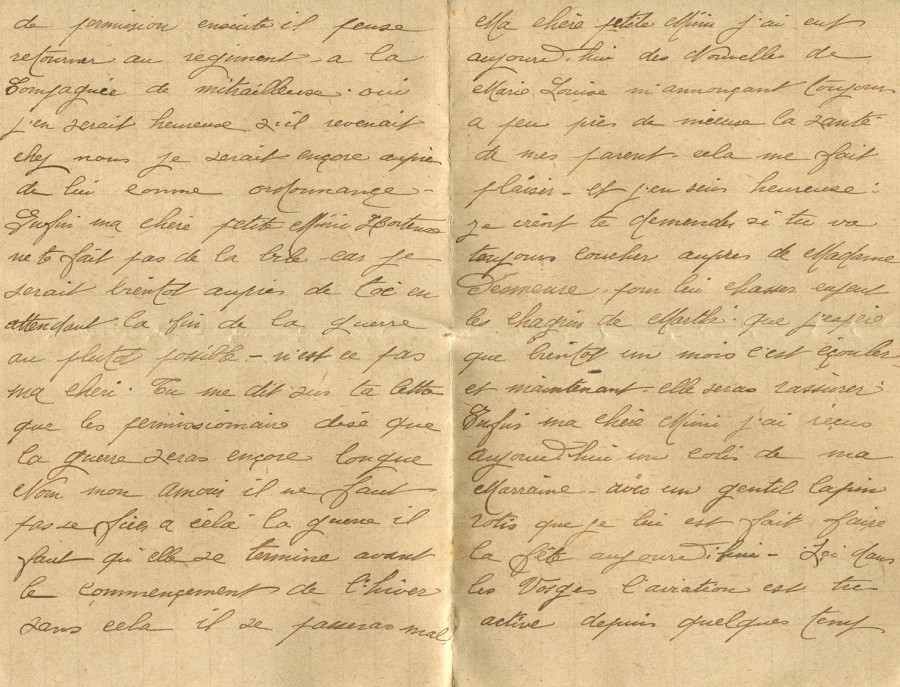 de permission ensuite il pense
retourner au regiment a la
Compagnie de mitrailleuse. oui
j'en serait heureuse s'il revenait
chez nous je serait encore aupres
de lui comme ordonnance -
Enfin ma chère petite Mimi Hortense
ne te fait pas de la bile car je
serait bientot aupres de toi en
attendant la fin de la guerre
au plutot possible - n'est ce pas
ma chéri. Tu me dit sur ta lettre
que les permissionaire dise que
la guerre seras ençore longue
Non mon Amour il ne faut
pas se fier a cela la guerre il
faut qu'elle se termine avant
le commençement de l'hiver
sans cela il se passeras mal
Ma chère petite Mimi j'ai eut
aujourd'hui des Nouvelles de
Marie Louise m'annonçant toujours
a peu près de mieux la santé
de mes parent cela me fait
plaisir - et j'en suis heureuse :
je vient te demender si tu va
toujours coucher aupres de Madame
pour lui chasser
les chagrin de Marthe. que j'espère
que bientot un mois c'est écouler
et maintenant elle seras rassurer :
Enfin ma chère Mimi j'ai reçus
aujourd'hui un colis de ma
Marraine - avec un gentil lapin
rotis que je lui est fait faire
la fête aujourd'hui - Ici dans
les Vosges l'aviation est tres
active depuis quelques temps